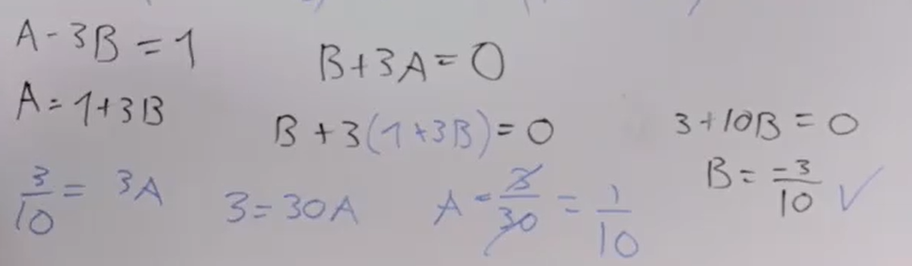 A - 3B = 1
B + 3A = 0
A = 1 + 3B
B + 3(1 + 3B) = 0
3 + 10B = 0
B = -3/10 ✓
3/10 = 3A
3 = 30A
A = 3/30 = 1/10